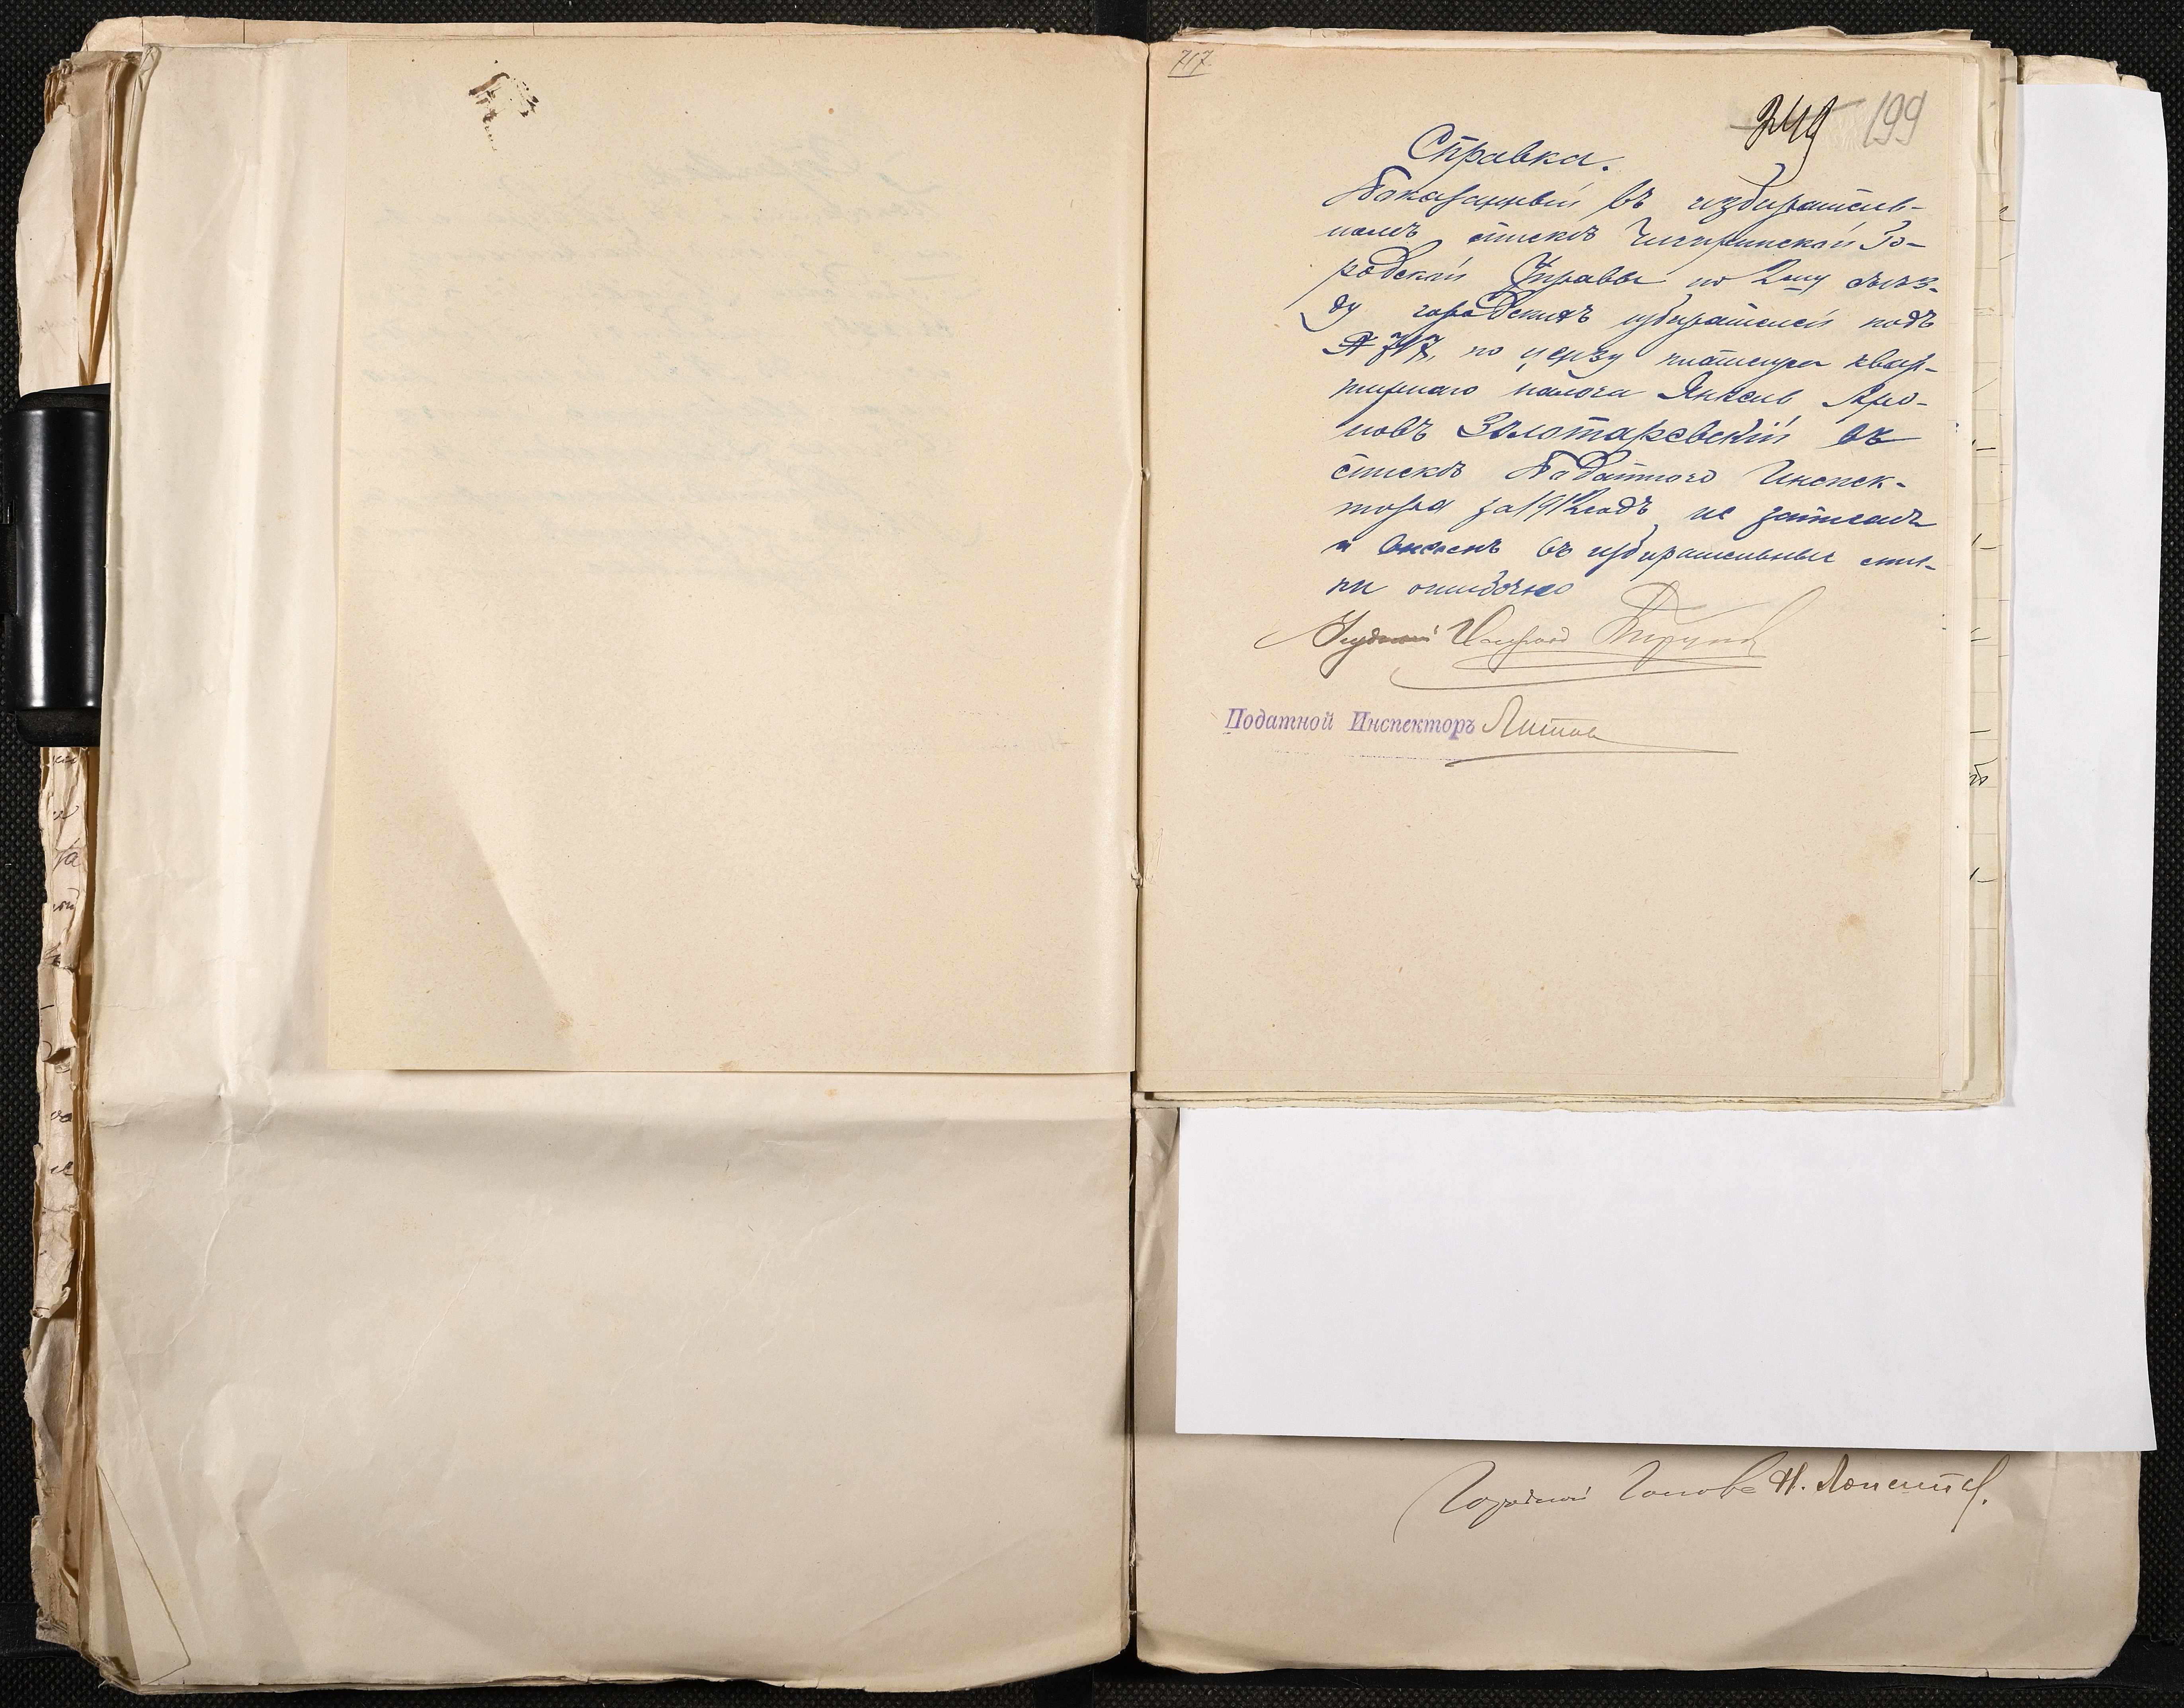 717
349 199
Справка.
Показанный въ избиратель-
номъ спискѣ Чигиринской Го-
родской Управы по 2му съѣз-
ду городскихъ избирателей подъ
№ 717, по цензу платежа квар-
тирнаго налога Янкель Аро-
новъ Золотаревскій въ
спискѣ Податного Инспек-
тора за 1912 годъ не записанъ
и внесенъ въ избирательные спис-
ки ошибочно
Податной Инспекторъ
Городской Голова Н.